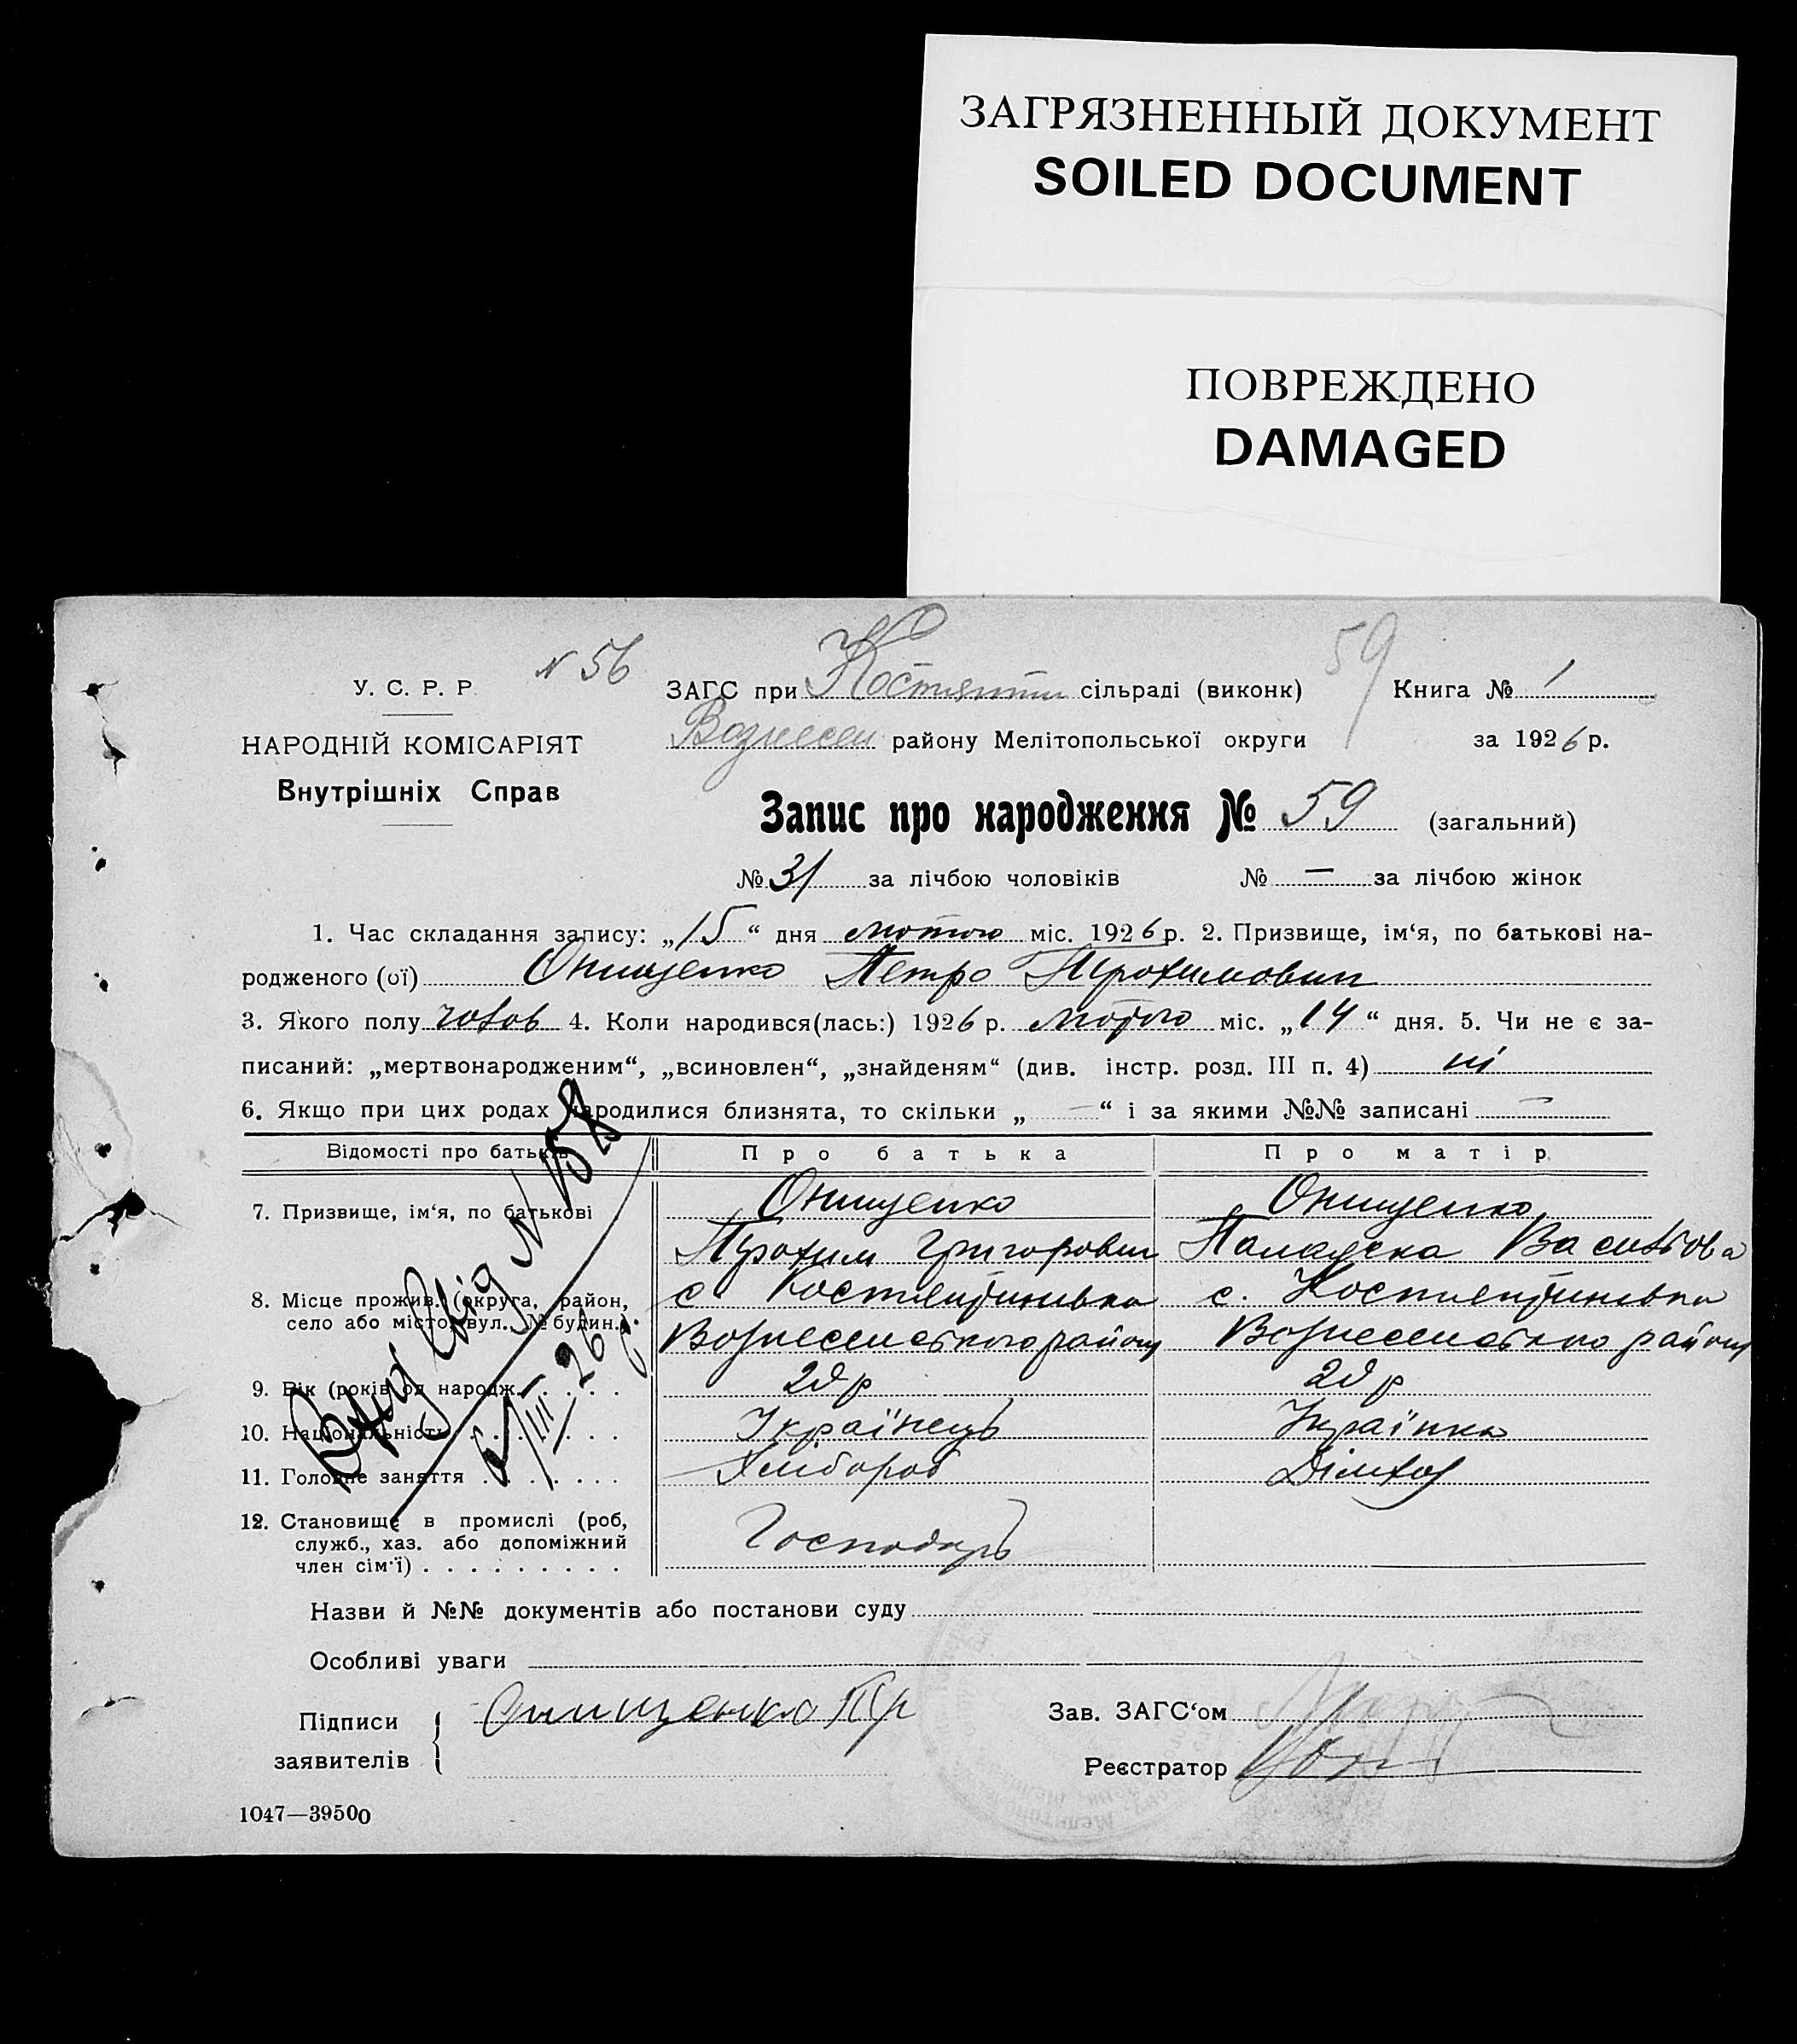 ЗАГРЯЗНЕННЫЙ ДОКУМЕНТ
SOILED DOCUMENT
ПОВРЕЖДЕНО
DAMAGED
N 56
59
У. С. Р. Р.
НАРОДНІЙ КОМІСАРІЯТ
Внутрішніх Справ
ЗАГС при Костянтин сільраді (виконк)
Книга № 1
Вознесен району Мелітопольської округи
за 1926 р.
Запис про народження № 59 (загальний)
№ 31 за лічбою чоловіків № — за лічбою жінок
1. Час складання запису: „15“ дня лютого міс. 1926 р. 2. Призвище, ім‘я, по батькові на-
родженого (ої) Онищенко Петро Прохимович
3. Якого полу чолов 4. Коли народився(лась:) 1926 р. лютого міс. „14“ дня. 5. Чи не є за-
писаний: „мертвонародженим“, „всиновлен“, „знайденям“ (див. інстр. розд. III п. 4) ні
6. Якщо при цих родах народилися близнята, то скільки „ — “ і за якими №№ записані —
Відомості про батьків Про батька Про матір
7. Призвище, ім‘я, по батькові Онищенко Онищенко
Прохим Григорович Палажка Васильова
8. Місце прожив. (округа, район, село або місто, вул. № будин.) с Костянтинівка с. Костянтинівка
Вознесенського району Вознесенського району
9. Вік (років од народж. 20 р 20 р
10. Національність Українець Українка
11. Головне заняття Хлібороб
12. Становище в промислі (роб,
служб., хаз. або допоміжний
член сім‘ї) Господарь
Назви й №№ документів або постанови суду
Особливі уваги
Підписи
заявителів
Онищенко Пр
Зав. ЗАГС‘ом
Реєстратор
1047—39500